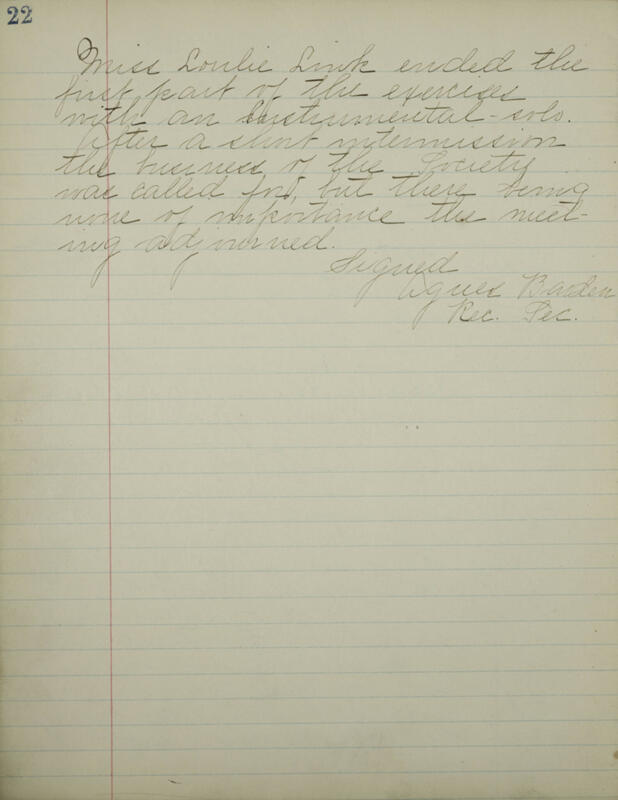 22
Miss Loulie Link ended the
first part of the exercises
with an instrumental-solo.
After a short intermission
the business of the Society
was called for, but there being
none of importance the meet-
ing adjourned.
Signed
Agnes Barden
Rec. Sec.